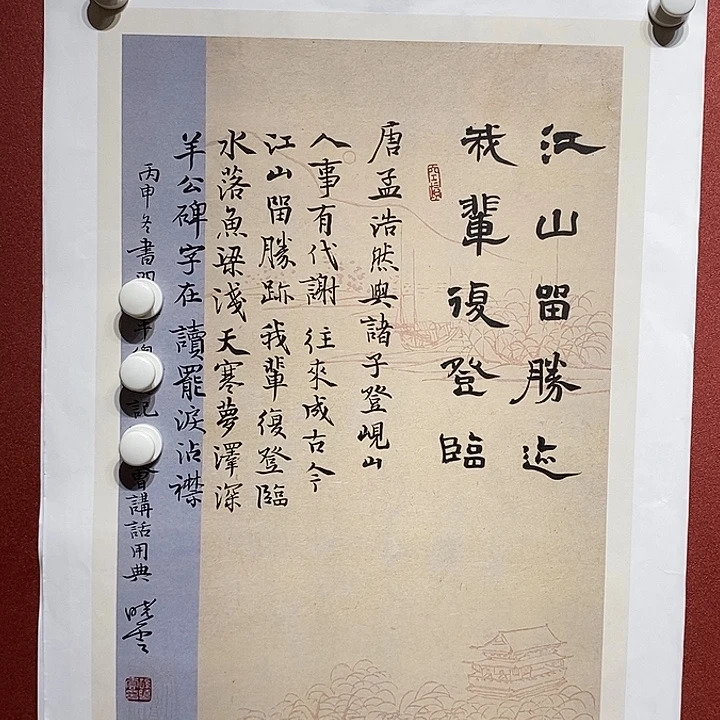 江山留勝迹
我輩復登臨
唐孟浩然與諸子登峴山
人事有代謝往來成古今
江山留勝跡我輩復登臨
水落魚梁淺天寒夢澤深
羊公碑字在讀罷淚沾襟
丙申冬書 記 會講話用典 曉雲